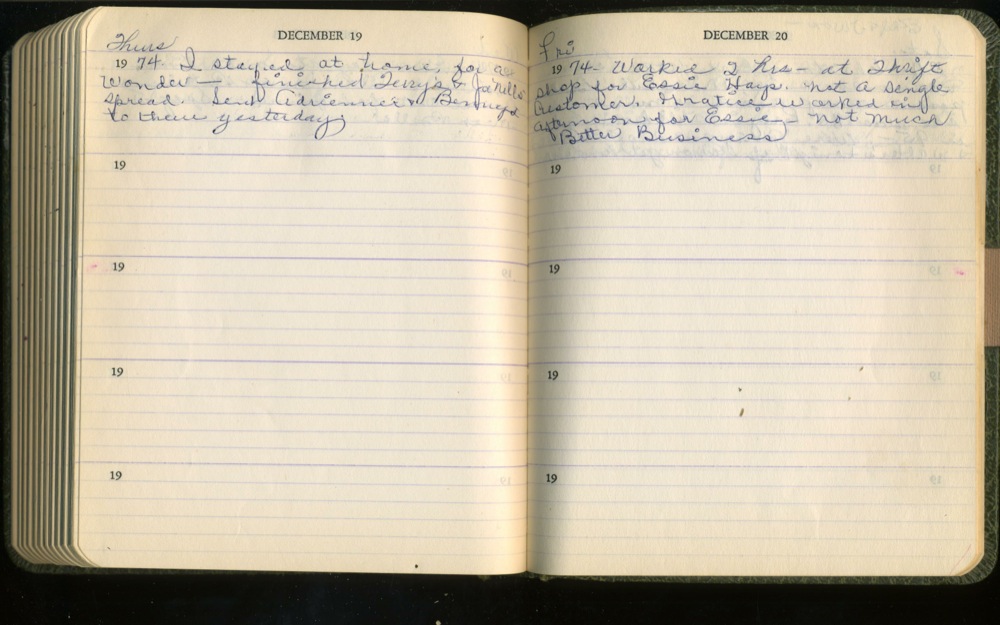 DECEMBER 19
Thurs
19 74- I stayed at home, for a
wonder — finished Terry's & JoNell's
spread. Sent Adrienne's &
to them yesterday
19
19
19
19
DECEMBER 20
Fri
19 74- Worked 2 hrs - at Thrift
shop for Essie Hays. not a single
Customer. worked in
afternoon for Essie - not much
Better Business
19
19
19
19